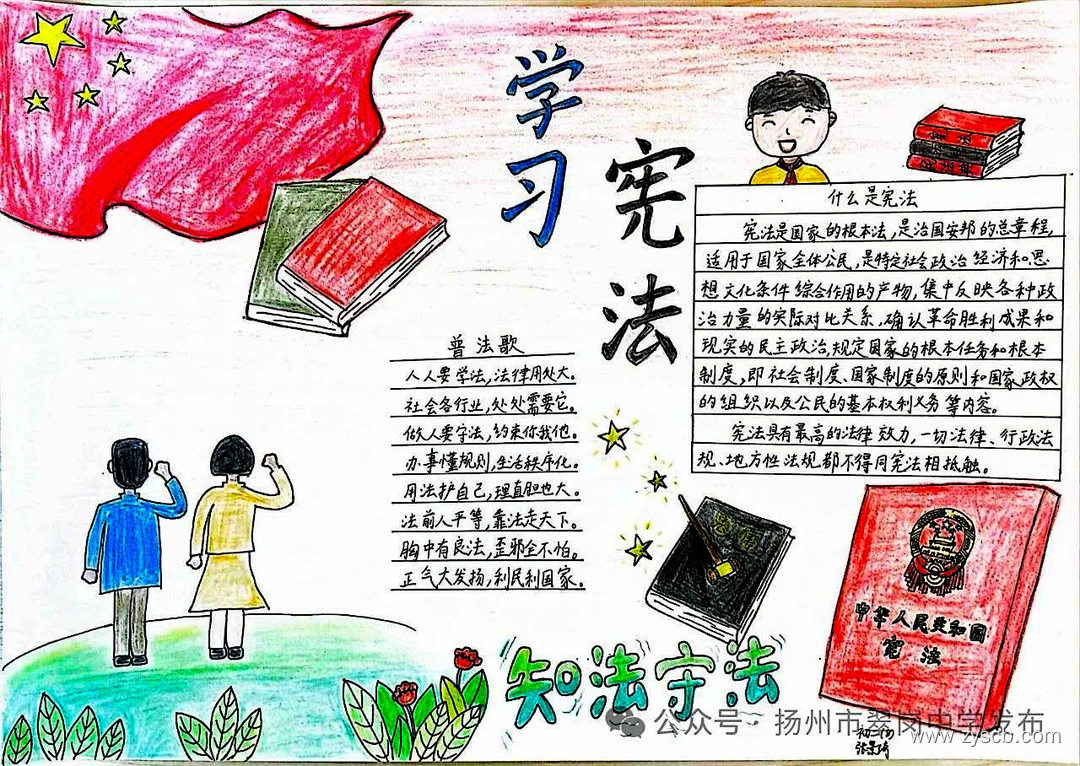 学习
宪法
什么是宪法
宪法是国家的根本法,是治国安邦的总章程,
适用于国家全体公民,是特定社会政治经济和思
想文化条件综合作用的产物,集中反映各种政
治力量的实际对比关系,确认革命胜利成果和
现实的民主政治,规定国家的根本任务和根本
制度,即社会制度、国家制度的原则和国家政权
的组织以及公民的基本权利义务等内容。
宪法具有最高的法律效力,一切法律、行政法
规、地方性法规都不得同宪法相抵触。
普法歌
人人要学法,法律用处大。
社会各行业,处处需要它。
做人要守法,约束你我他。
办事懂规则,生活秩序化。
用法护自己,理直胆也大。
法前人平等,靠法走天下。
胸中有良法,歪邪全不怕。
正气大发扬,利民利国家。
中华人民共和国
宪法
知法守法
公众号·扬州市翠岗中学发布
www.zyscb.com